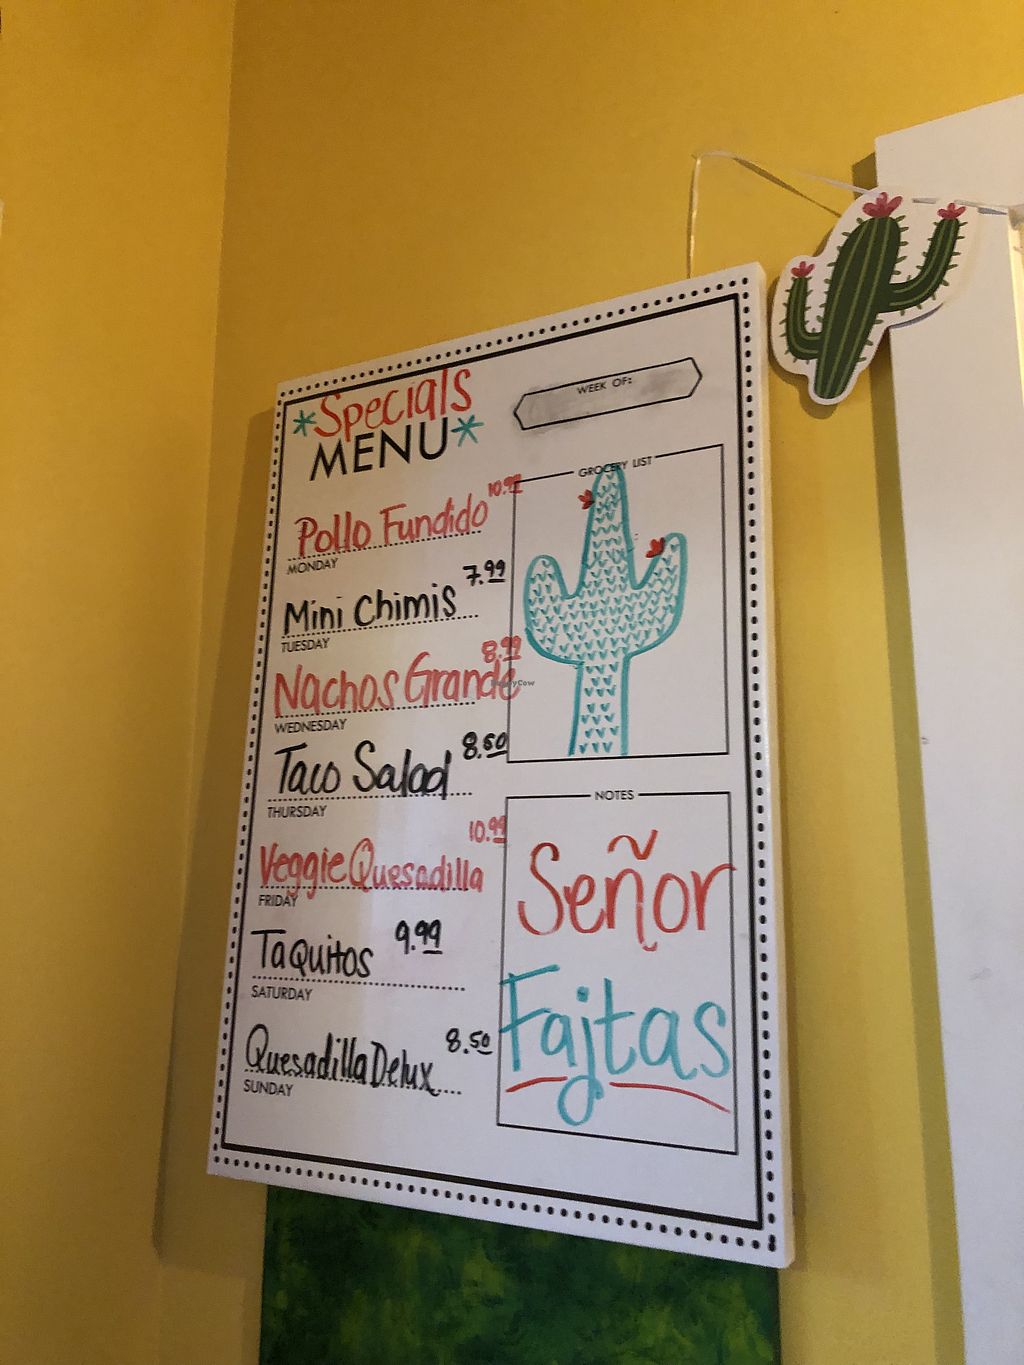 *Specials*
MENU
WEEK OF:
10.99
Pollo Fundido
MONDAY
7.99
Mini Chimis
TUESDAY
8.99
Nachos Grande
WEDNESDAY
8.50
Taco Salad
THURSDAY
10.99
Veggie Quesadilla
FRIDAY
Taquitos 9.99
SATURDAY
Quesadilla Delux 8.50
SUNDAY
GROCERY LIST
HappyCow
NOTES
Señor
Fajitas